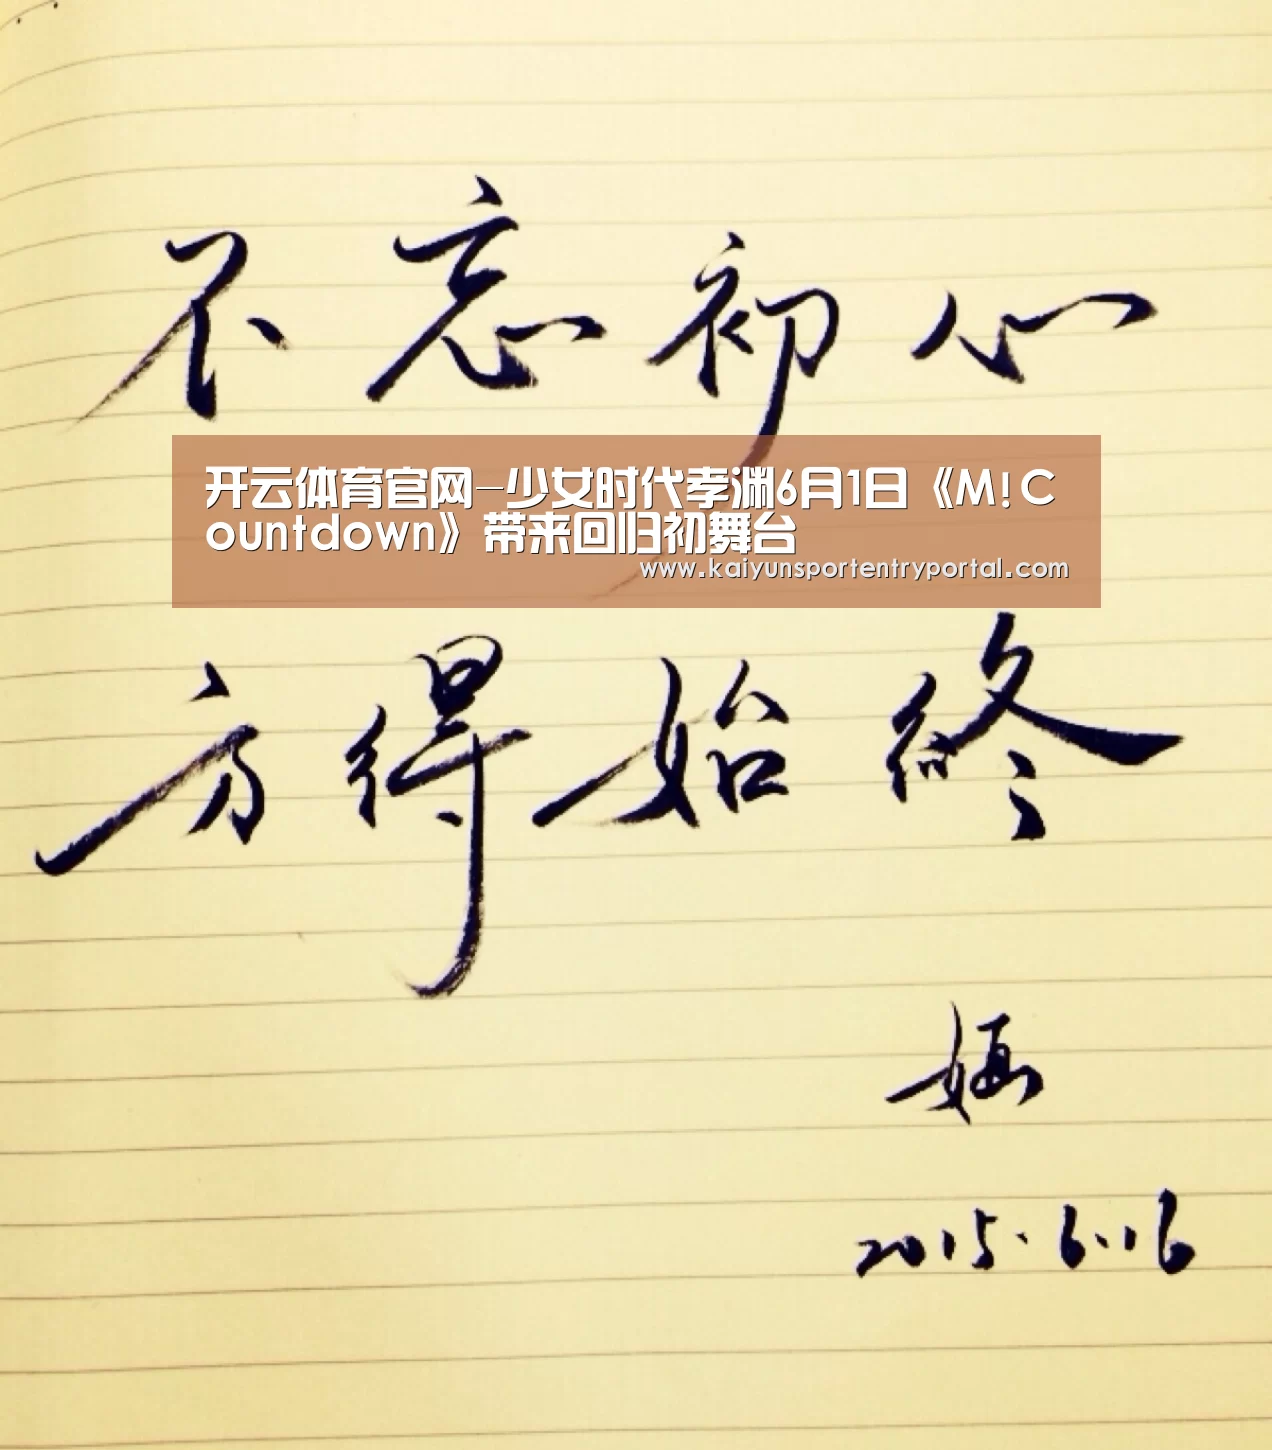 不忘初心
开云体育官网-少女时代孝渊6月1日《M!C
ountdown》带来回归初舞台
www.kaiyunsportentryportal.com
方得始终
2015.6.16